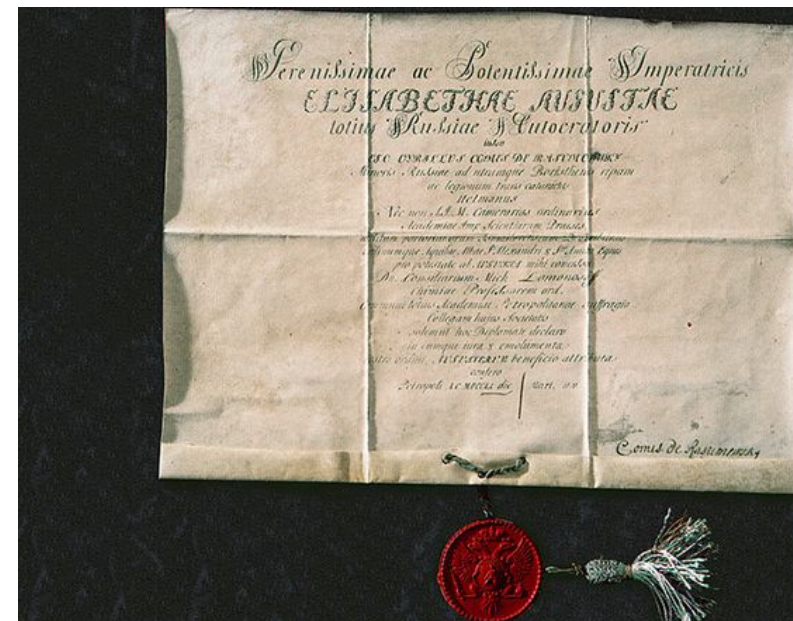 Serenissimae ac Potentissimae Imperatricis
ELISABETHAE AUGUSTAE
totius Russiae Autocratoris
iussu
EGO CYRILLUS COMES DE RASUMOWSKY
Minoris Russiae ad utramque Borysthenis ripam
ac legionum trans cataractas
Hetmanus
Nec non S.I.M. Camerarius ordinarius
Academiae Imp. Scientiarum Praeses
Alexandri & Annae Eques
pro potestate ab AUGUSTA mihi concessa
Dn. Consiliarium Mich Lomonosoff
Chimiae Professorem ord.
totius Academiae Petropolitanae suffragio
Collegam huius Societatis
solemni hoc Diplomate declaro
iura & emolumenta
ordini AUGUSTAE beneficio attributa
confero
Petropoli die
Comes de Rasumowsky